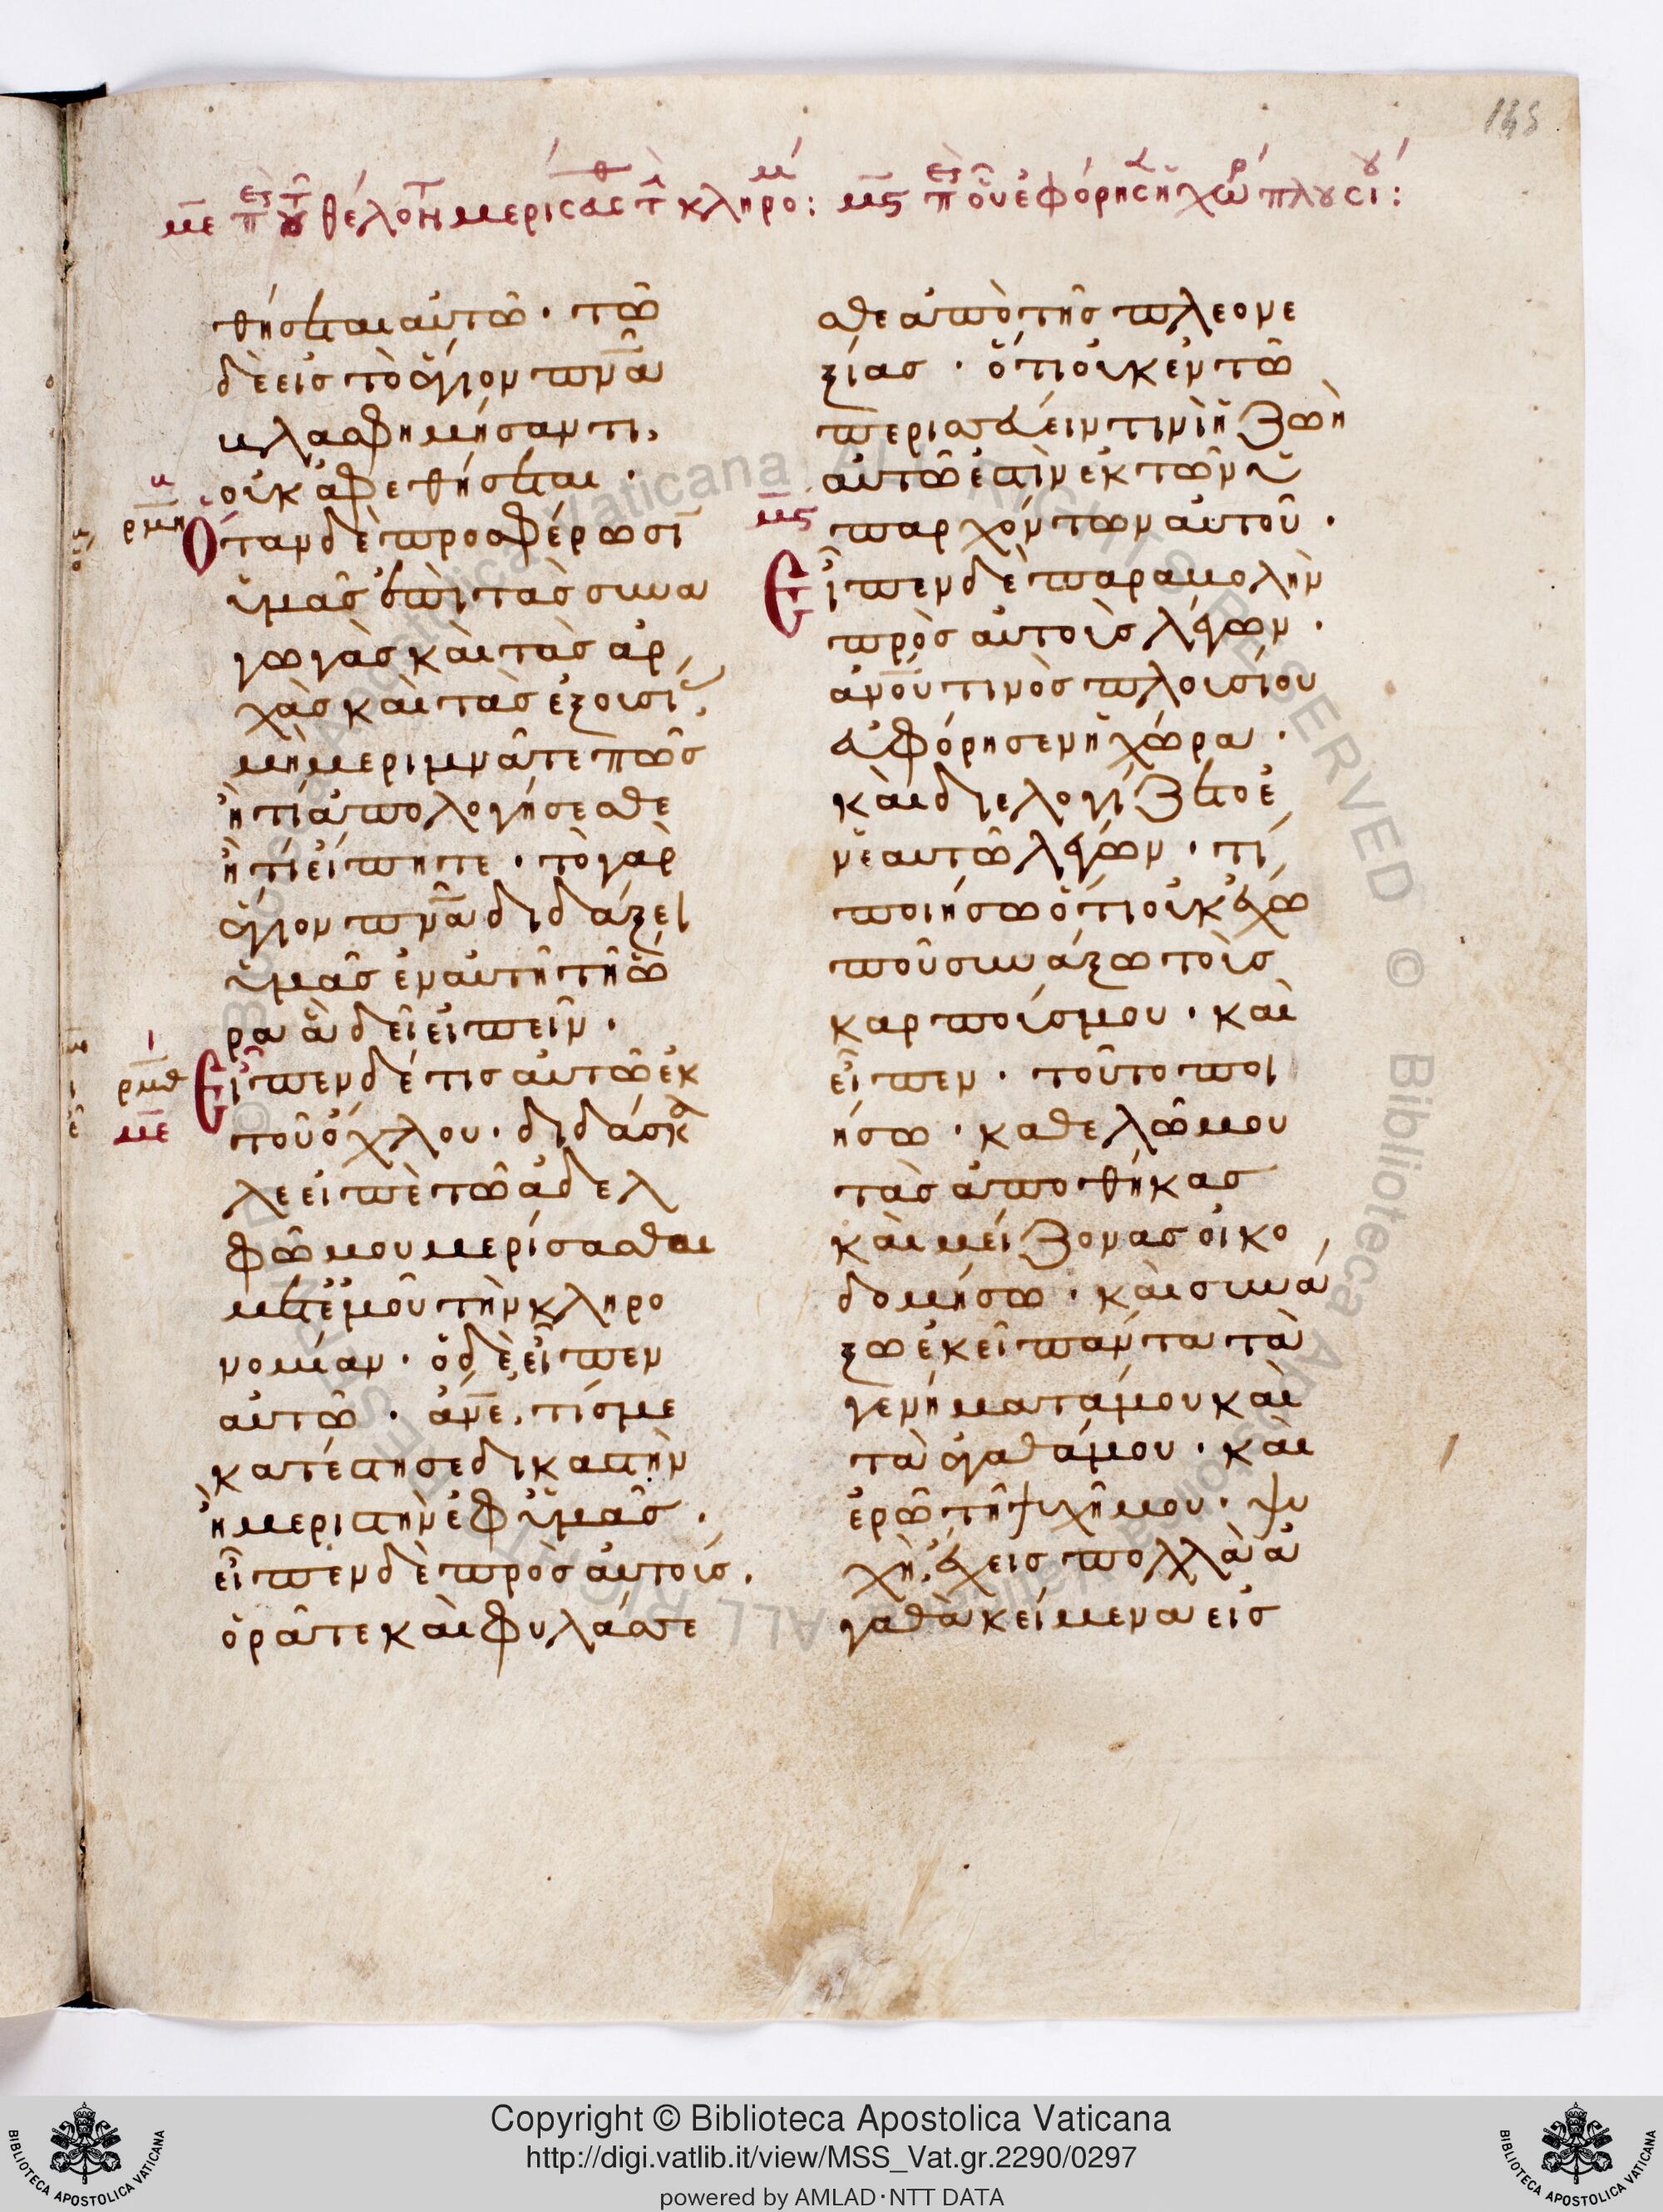 145
με π τοῦ θέλοντ μερίσασθ τ κληρο: μς π οὗ εὐφόρησεν ἡ χώρ πλουσί:
θήσεται αὐτῶ · τῶ
δὲ εἰς τὸ ἅγιον πνᾶ
βλασφημήσαντι,
οὐκ ἀφεθήσεται ·
ρμη Ὅταν δὲ προσφέρωσῑ
ὑμᾶς ἐπὶ τὰς συνα
γωγὰς καὶ τὰς ἀρ
χὰς καὶ τὰς ἐξουσί,
μὴ μεριμνᾶτε πῶς
ἢ τί ἀπολογήσεσθε
ἢ τί εἴπητε · τὸ γὰρ
ἅγιον πνᾶ διδάξει
ὑμᾶς ἐν αὐτῆ τῆ ὥ
ρα ἃ δεῖ εἰπεῖν ·
ρμθ Εἶπεν δέ τις αὐτῶ ἐκ
με τοῦ ὄχλου · διδάσκα
λε εἰπὲ τῶ ἀδελ
φῶ μου μερίσασθαι
μετ ἐμοῦ τὴν κληρο
νομίαν · ὁ δὲ εἶπεν
αὐτῶ · ἄνε, τίς με
κατέστησε δικαστὴν
ἢ μεριστὴν ἐφ ὑμᾶς ·
εἶπεν δὲ πρὸς αὐτούς,
ὁρᾶτε καὶ φυλάσσε
σθε ἀπὸ τῆς πλεονε
ξίας · ὅτι οὐκ ἐν τῶ
περισσεύειν τινὶ ἡ ζωὴ
αὐτῶ ἐστὶν ἐκ τῶν ὑ
παρχόντων αὐτοῦ ·
μς Εἶπεν δὲ παραβολὴν
πρὸς αὐτοὺς λέγων ·
ἀνοῦ τινὸς πλουσίου
εὐφόρησεν ἡ χώρα ·
καὶ διελογίζετο ἐ
ν ἑαυτῶ λέγων · τί
ποιήσω ὅτι οὐκ ἔχω
ποῦ συνάξω τοὺς
καρπούς μου · καὶ
εἶπεν · τοῦτο ποι
ήσω · καθελῶ μου
τὰς ἀποθήκας
καὶ μείζονας οἰκο
δομήσω · καὶ συνά
ξω ἐκεῖ πάντα τὰ
γενήματά μου καὶ
τὰ ἀγαθά μου · καὶ
ἐρῶ τῆ ψυχῆ μου · ψυ
χὴ, ἔχεις πολλὰ ἀ
γαθὰ κείμενα εἰς
Copyright © Biblioteca Apostolica Vaticana
http://digi.vatlib.it/view/MSS_Vat.gr.2290/0297
powered by AMLAD·NTT DATA
BIBLIOTECA APOSTOLICA VATICANA
BIBLIOTECA APOSTOLICA VATICANA